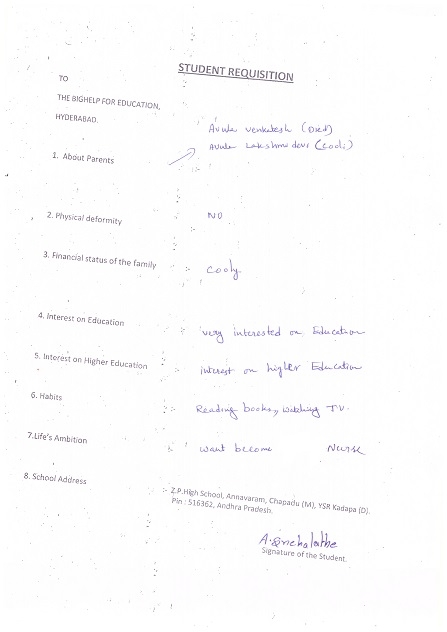 STUDENT REQUISITION
TO
THE BIGHELP FOR EDUCATION,
HYDERABAD.
Avula Venkatesh (Died)
1. About Parents Avula Lakshmi devi (Cooli)
2. Physical deformity :- NO
3. Financial status of the family :- Cooly
4. Interest on Education :- very interested on Education
5. Interest on Higher Education :- interest on higher Education
6. Habits :- Reading books, watching TV.
7.Life's Ambition : want become Nurse
8. School Address :- Z.P.High School, Annavaram, Chapadu (M), YSR Kadapa (D).
Pin : 516362, Andhra Pradesh.
Signature of the Student.